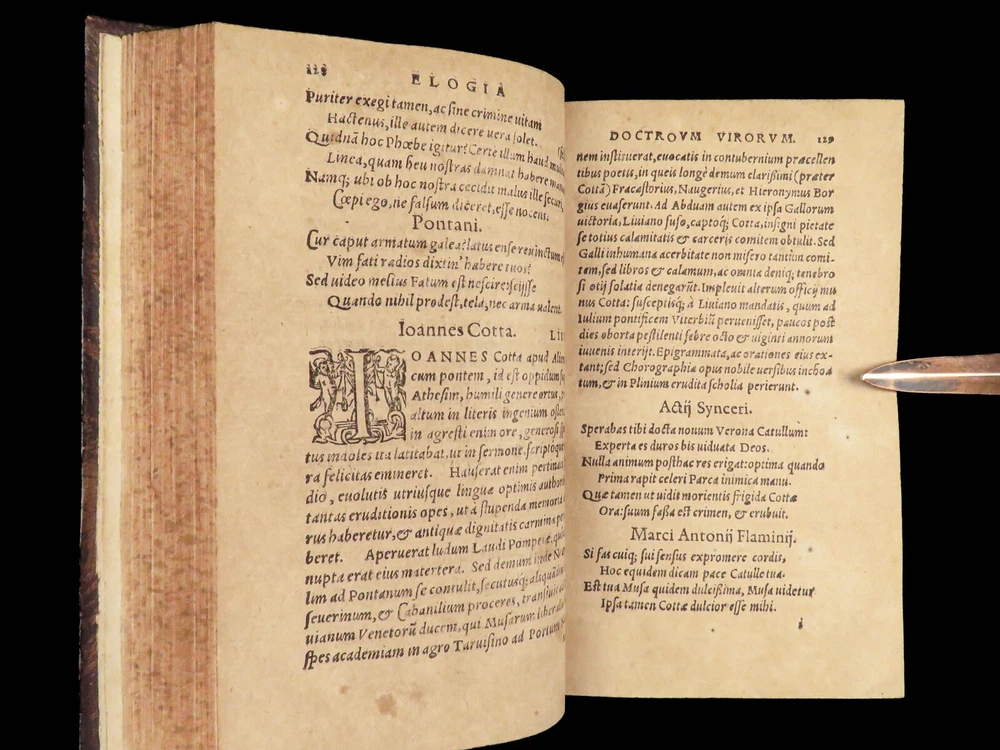 128 ELOGIA
Puriter exegi tamen, ac sine crimine uitam
Hactenus, ille autem dicere uera solet.
Quidnã hoc Phœbe igitur? Certe illum haud
Linea, quam heu nostras damnat habere
Namq; ubi ob hoc nostra cecidit malus ille securi,
Cœpi ego, ne falsum diceret, esse nocens.
Pontani.
Cur caput armatum galea? latus ense reuinctum
Vim fati radios dixti n' habere tuos?
Sed uideo melius Fatum est nescire: scijsse
Quando nihil prodest, tela, nec arma ualent.
Ioannes Cotta.
IOANNES Cotta apud
cum pontem, id est oppidum
Athesim, humili genere ortus,
altum in literis ingenium
in agresti enim ore, generosi
tus indoles ita latitabat, ut in sermone, scriptoque
ra felicitas emineret. Hauserat enim
dio, euolutis utriusque linguæ optimis
tantas eruditionis opes, ut à stupenda memoria
rus haberetur, & antiquæ dignitatis carmina
beret. Aperuerat ludum Laudi Pompeiæ,
nupta erat eius matertera. Sed demum inde
lim ad Pontanum se contulit, secutusq;
seuerinum, & Cabanilium proceres,
uianum Venetorũ ducem, qui Musarum
spes academiam in agro Taruisino ad Portum
DOCTROVM VIRORVM. 129
nem instituerat, euocatis in contubernium præcellen
tibus poetis, in queis longè demum clarißimi (præter
Cottã) Fracastorius, Naugerius, et Hieronymus Bor
gius euaserunt. Ad Abduam autem ex ipsa Gallorum
uictoria, Liuiano fuso, captoq; Cotta, insigni pietate
se totius calamitatis & carceris comitem obtulit. Sed
Galli inhumana acerbitate non misero tantùm comi-
tem, sed libros & calamum, ac omnia deniq; tenebro
si otij solatia denegarũt. Impleuit alterum officij mu
nus Cotta: susceptisq; à Liuiano mandatis, quum ad
Iulium pontificem Viterbiũ peruenisset, paucos post
dies oborta pestilenti febre octo & uiginti annorum
iuuenis interijt. Epigrammata, ac orationes eius ex-
tant; sed Chorographia opus nobile uersibus inchoa
tum, & in Plinium erudita scholia perierunt.
Actij Synceri.
Sperabas tibi docta nouum Verona Catullum:
Experta es duros bis uiduata Deos.
Nulla animum posthac res erigat: optima quando
Prima rapit celeri Parca inimica manu.
Quæ tamen ut uidit morientis frigida Cottæ
Ora: suum faßa est crimen, & erubuit.
Marci Antonij Flaminij.
Si fas cuiq; sui sensus expromere cordis,
Hoc equidem dicam pace Catulle tua.
Est tua Musa quidem dulcißima, Musa uidetur
Ipsa tamen Cottæ dulcior esse mihi.
i